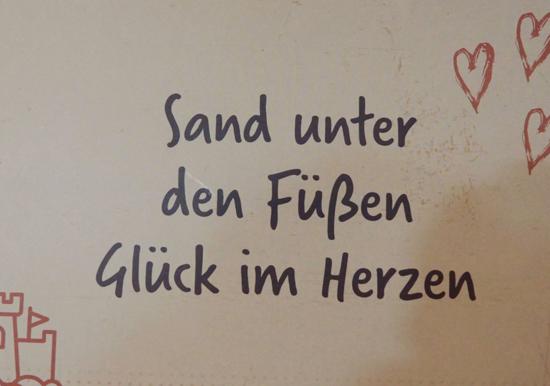 Sand unter
den Füßen
Glück im Herzen